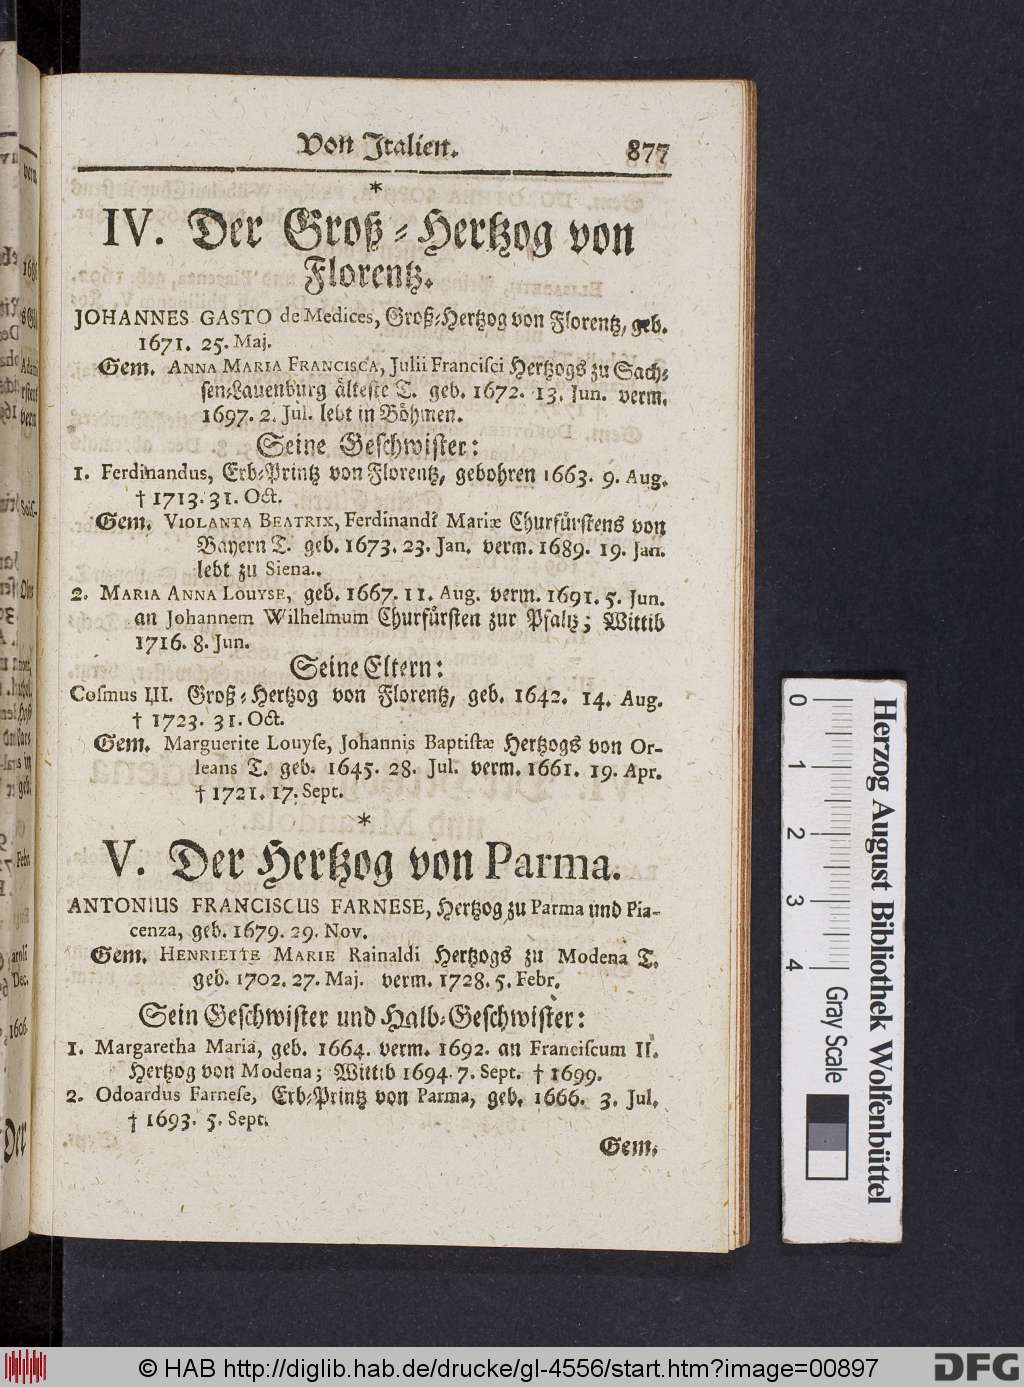 Von Italien. 877
*
IV. Der Groß-Hertzog von
Florentz.
JOHANNES GASTO de Medices, Groß-Hertzog von Florentz, geb.
1671. 25. Maj.
Gem. ANNA MARIA FRANCISCA, Julii Francisci Hertzogs zu Sach-
sen-Lauenburg älteste T. geb. 1672. 13. Jun. verm.
1697. 2. Jul. lebt in Böhmen.
Seine Geschwister:
1. Ferdinandus, Erb-Printz von Florentz, gebohren 1663. 9. Aug.
† 1713. 31. Oct.
Gem. VIOLANTA BEATRIX, Ferdinandi Mariæ Churfürstens von
Bayern T. geb. 1673. 23. Jan. verm. 1689. 19. Jan.
lebt zu Siena.
2. MARIA ANNA LOUYSE, geb. 1667. 11. Aug. verm. 1691. 5. Jun.
an Johannem Wilhelmum Churfürsten zur Pfaltz; Wittib
1716. 8. Jun.
Seine Eltern:
Cosmus III. Groß-Hertzog von Florentz, geb. 1642. 14. Aug.
† 1723. 31. Oct.
Gem. Marguerite Louyse, Johannis Baptistæ Hertzogs von Or-
leans T. geb. 1645. 28. Jul. verm. 1661. 19. Apr.
† 1721. 17. Sept.
*
V. Der Hertzog von Parma.
ANTONIUS FRANCISCUS FARNESE, Hertzog zu Parma und Pia-
cenza, geb. 1679. 29. Nov.
Gem. HENRIETTE MARIE Rainaldi Hertzogs zu Modena T.
geb. 1702. 27. Maj. verm. 1728. 5. Febr.
Sein Geschwister und Halb-Geschwister:
1. Margaretha Maria, geb. 1664. verm. 1692. an Franciscum II.
Hertzog von Modena; Wittib 1694. 7. Sept. † 1699.
2. Odoardus Farnese, Erb-Printz von Parma, geb. 1666. 3. Jul.
† 1693. 5. Sept.
Gem.
0 1 2 3 4
Gray Scale
Herzog August Bibliothek Wolfenbüttel
© HAB http://diglib.hab.de/drucke/gl-4556/start.htm?image=00897
DFG